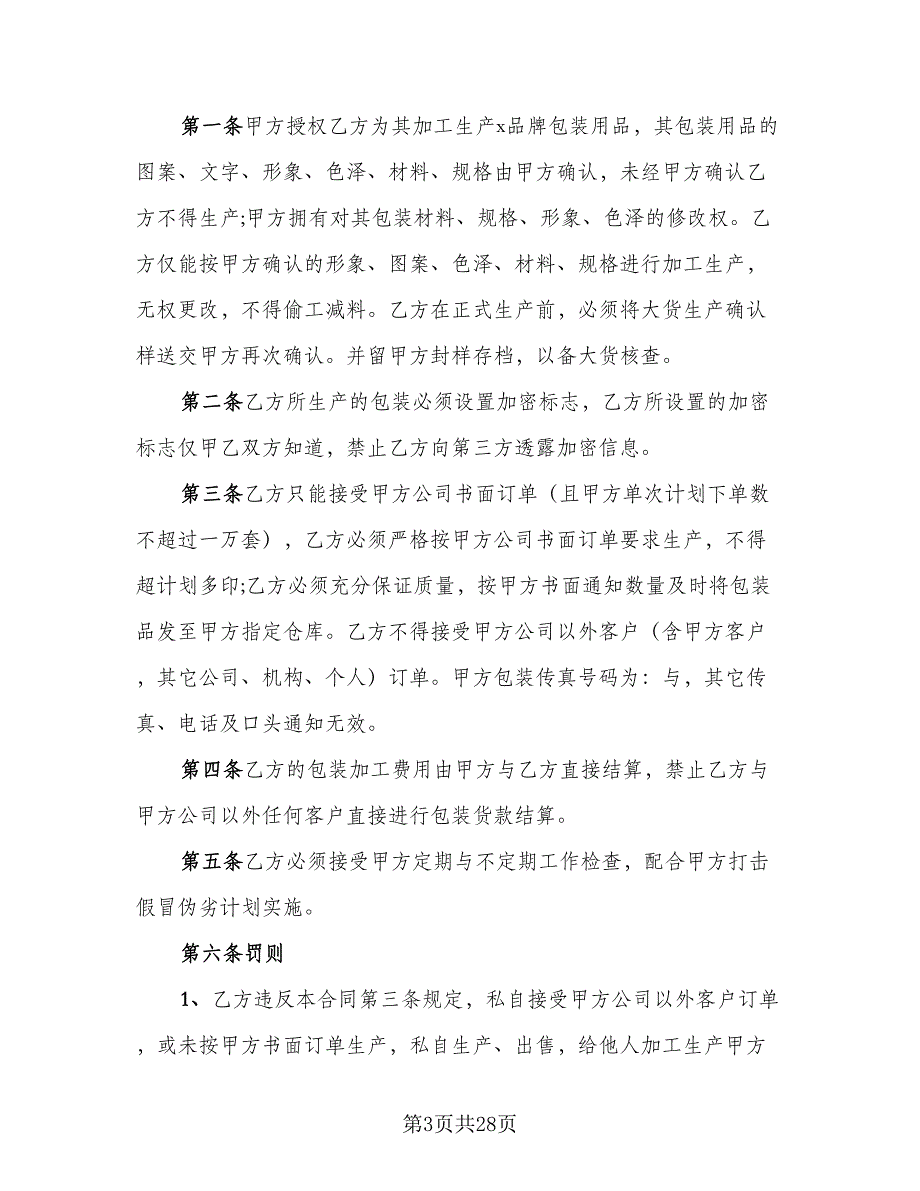 第一条甲方授权乙方为其加工生产x品牌包装用品，其包装用品的
图案、文字、形象、色泽、材料、规格由甲方确认，未经甲方确认乙
方不得生产;甲方拥有对其包装材料、规格、形象、色泽的修改权。乙
方仅能按甲方确认的形象、图案、色泽、材料、规格进行加工生产，
无权更改，不得偷工减料。乙方在正式生产前，必须将大货生产确认
样送交甲方再次确认。并留甲方封样存档，以备大货核查。
第二条乙方所生产的包装必须设置加密标志，乙方所设置的加密
标志仅甲乙双方知道，禁止乙方向第三方透露加密信息。
第三条乙方只能接受甲方公司书面订单（且甲方单次计划下单数
不超过一万套），乙方必须严格按甲方公司书面订单要求生产，不得
超计划多印;乙方必须充分保证质量，按甲方书面通知数量及时将包装
品发至甲方指定仓库。乙方不得接受甲方公司以外客户（含甲方客户
，其它公司、机构、个人）订单。甲方包装传真号码为：与，其它传
真、电话及口头通知无效。
第四条乙方的包装加工费用由甲方与乙方直接结算，禁止乙方与
甲方公司以外任何客户直接进行包装货款结算。
第五条乙方必须接受甲方定期与不定期工作检查，配合甲方打击
假冒伪劣计划实施。
第六条罚则
1、乙方违反本合同第三条规定，私自接受甲方公司以外客户订单
，或未按甲方书面订单生产，私自生产、出售，给他人加工生产甲方
第3页共28页